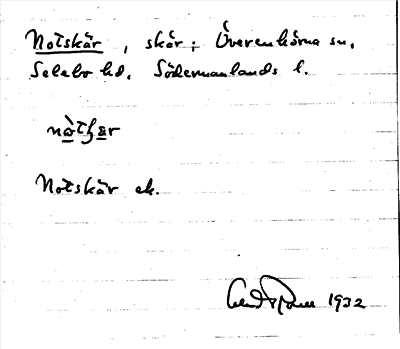 Notskär, skär; Överenhörna sn,
Selebo hd, Södermanlands l.
Notskär ek.
1932